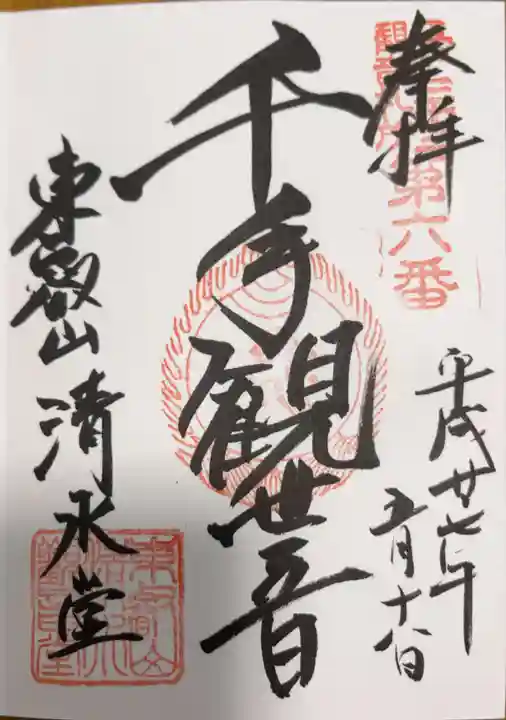 奉拝
第六番
平成廿七年
五月十八日
千手観世音
東叡山 清水堂